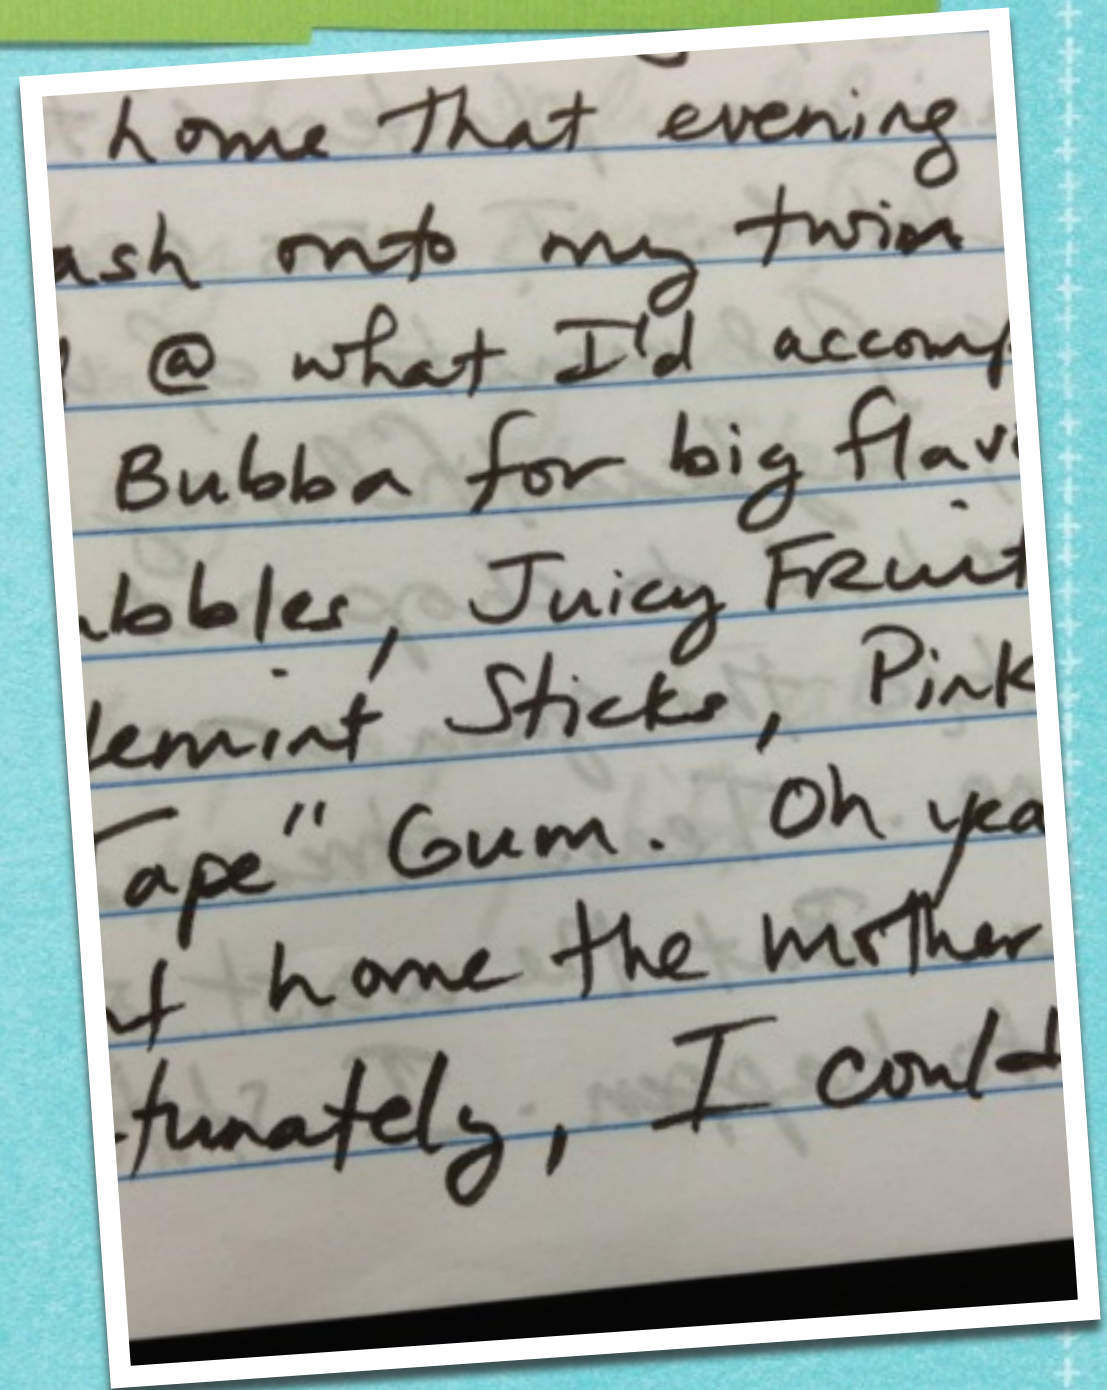 home that evening
ash onto my twin
@ what I'd accomp
Bubba for big flav
bbles, Juicy Fruit
lemint Sticks, Pink
Tape" Gum. Oh yea
home the mother
tunately, I could